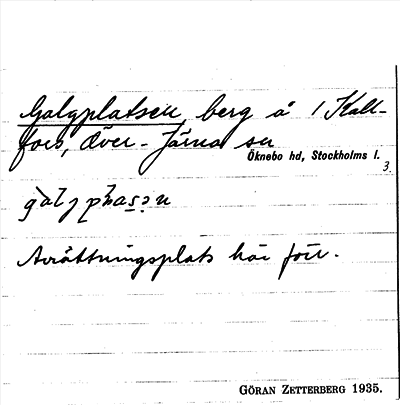 Galgplatsen, berg å 1 Kall-
fors, Över-Järna sn
Öknebo hd, Stockholms l.
3.
Avrättningsplats här förr.
GÖRAN ZETTERBERG 1935.